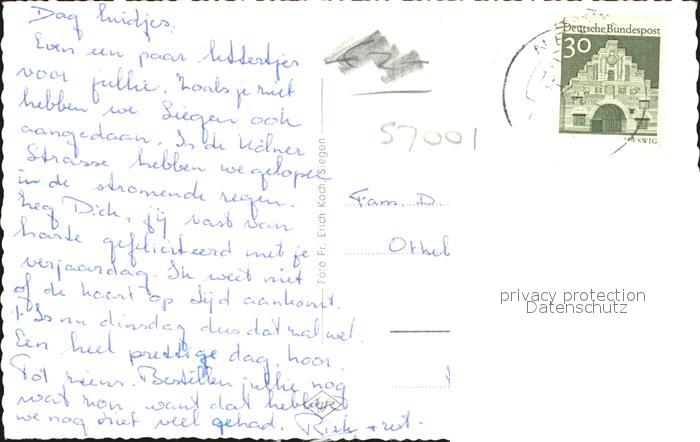 Dag luidjes.
Even een paar lettertjes
voor jullie. Zoals je ziet
hebben we Siegen ook
aangedaan. In de Kölner
Strasse hebben we gelopen
in de stromende regen.
Zeg Dick, jij vast van
harte gefeliciteerd met je
verjaardag. Ik weet niet
of de kaart op tijd aankomt.
't Is nu dinsdag dus dat zal wel.
Een heel prettige dag, hoor.
Tot ziens. Bestellen jullie nog
wat zon want dat hebben
we nog niet veel gehad.
Foto Fr. Erich Koch, Siegen
57001
Deutsche Bundespost
30
Fam. D.
Othel
privacy protection
Datenschutz